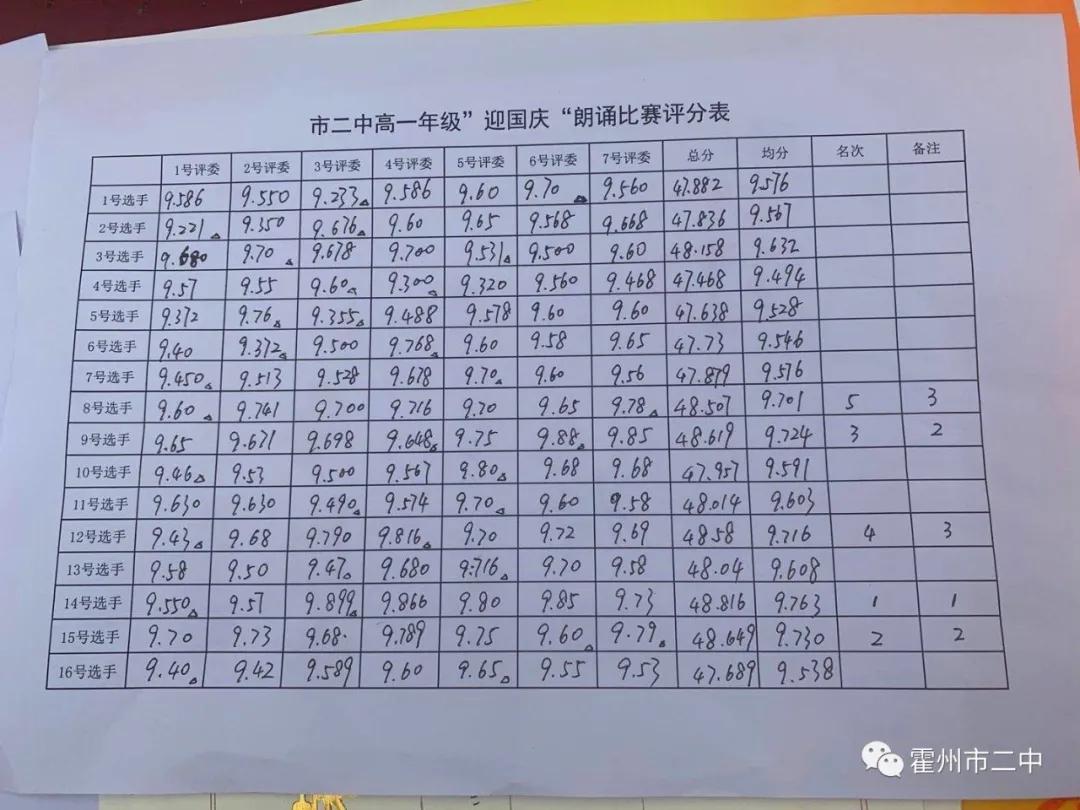 市二中高一年级”迎国庆“朗诵比赛评分表
1号评委 2号评委 3号评委 4号评委 5号评委 6号评委 7号评委 总分 均分 名次 备注
1号选手 9.586 9.550 9.233 9.586 9.60 9.70 9.560 47.882 9.576
2号选手 9.221 9.350 9.676 9.60 9.65 9.568 9.668 47.836 9.567
3号选手 9.680 9.70 9.678 9.700 9.531 9.500 9.60 48.158 9.632
4号选手 9.57 9.55 9.60 9.300 9.320 9.560 9.468 47.468 9.494
5号选手 9.372 9.76 9.355 9.488 9.578 9.60 9.60 47.638 9.528
6号选手 9.40 9.372 9.500 9.768 9.60 9.58 9.65 47.73 9.546
7号选手 9.450 9.513 9.528 9.678 9.70 9.60 9.56 47.879 9.576
8号选手 9.60 9.741 9.700 9.716 9.70 9.65 9.78 48.507 9.701 5 3
9号选手 9.65 9.671 9.698 9.648 9.75 9.88 9.85 48.619 9.724 3 2
10号选手 9.46 9.53 9.500 9.567 9.80 9.68 9.68 47.957 9.591
11号选手 9.630 9.630 9.490 9.574 9.70 9.60 9.58 48.014 9.603
12号选手 9.43 9.68 9.790 9.816 9.70 9.72 9.69 48.58 9.716 4 3
13号选手 9.58 9.50 9.47 9.680 9.716 9.70 9.58 48.04 9.608
14号选手 9.550 9.57 9.899 9.866 9.80 9.85 9.73 48.816 9.763 1 1
15号选手 9.70 9.73 9.68 9.789 9.75 9.60 9.79 48.649 9.730 2 2
16号选手 9.40 9.42 9.589 9.60 9.65 9.55 9.53 47.689 9.538
霍州市二中